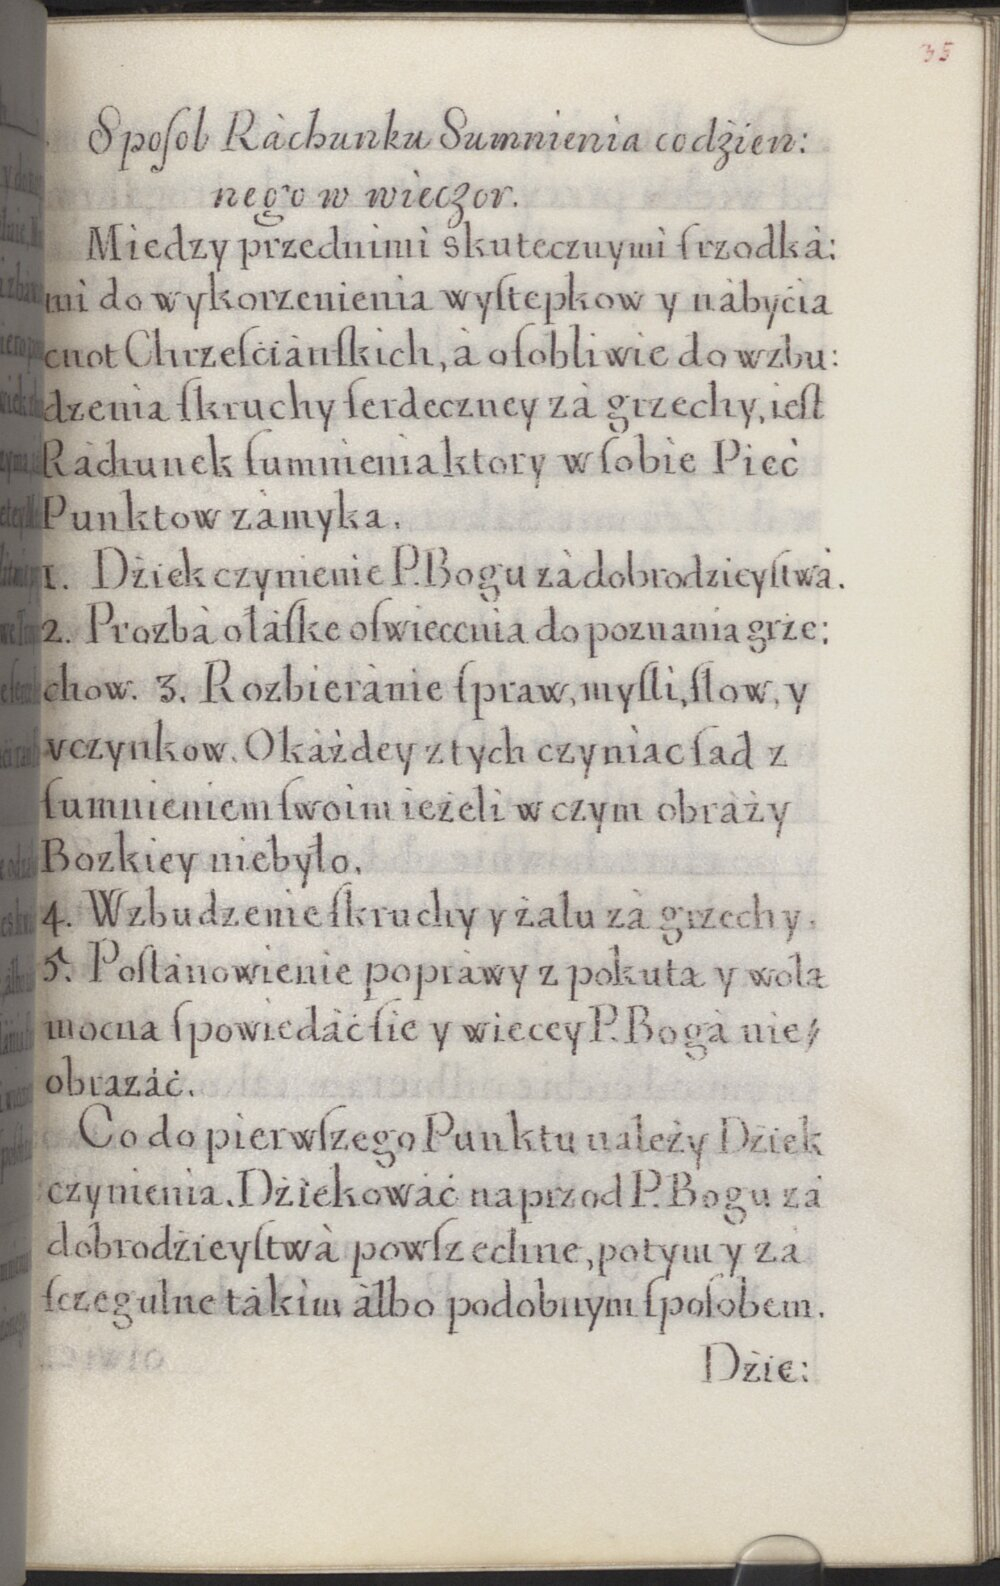 35
Spoſob Ràchunku Sumnienia codżien:
nego w wieczor.
Miedzy przednimi skutecznymi ſrzodkà:
mi do wykorzenienia wyſtepkow y nàbyćia
cnot Chrzeſćiànſkich, à oſobliwie do wzbu:
dzenia ſkruchy ſerdeczney zà grzechy, ieſt
Ràchunek ſumnienia ktory w ſobie Pieć
Punktow zàmyka.
1. Dżiek czynienie P. Bogu zà dobrodzieyſtwà.
2. Prozbà o łàſke oſwiecenia do poznania grze:
chow. 3. Rozbierànie ſpraw, myſli, ſłow, y
vczynkow. O kàżdey z tych czyniac ſad z
ſumnieniem ſwoim ieżeli w czym obràży
Bozkiey niebyło.
4. Wzbudzenie ſkruchy y żalu zà grzechy.
5. Poſtànowienie popràwy z pokuta y wola
mocna ſpowiedàć ſie y wiecey P. Bogà nie/
obrazáć.
Co do pierwſzego Punktu należy Dżiek
czynienia. Dżiekowàć naprzod P. Bogu zà
dobrodżieyſtwà powſzechne, potym y zà
ſczegulne tàkim àlbo podobnym ſpoſobem.
Dżie: